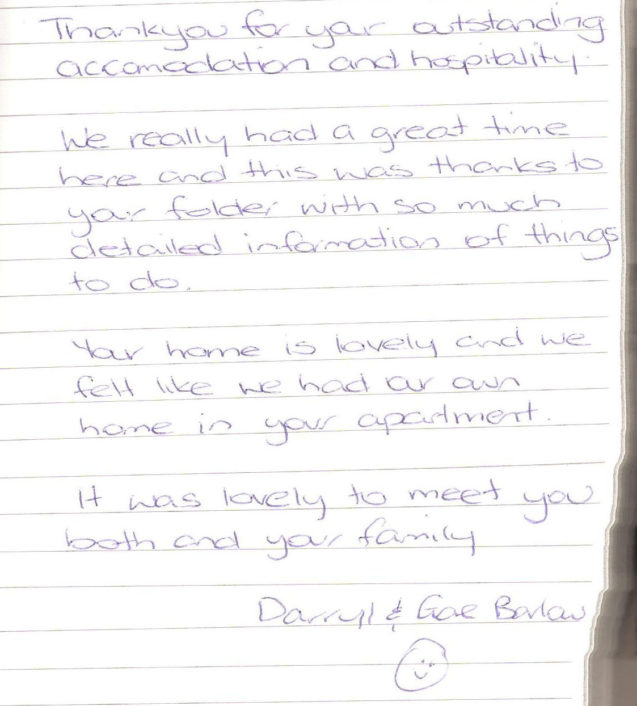 Thankyou for your outstanding
accomodation and hospitality.
We really had a great time
here and this was thanks to
your folder with so much
detailed information of things
to do.
Your home is lovely and we
felt like we had our own
home in your apartment.
It was lovely to meet you
both and your family
Darryl & Gae Barlow